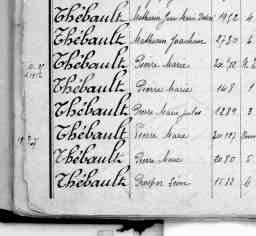 Thébault Mathurin Jean Marie 1952 4
Thébault Mathurin Joachim 2730 6
Thébault Pierre Marie
Thébault Pierre Marie 148 1
Thébault Pierre Marie Jules 1289 3
Thébault Pierre Marie
Thébault Pierre Marie 2080 5
Thébault Prosper Léon 1533 4